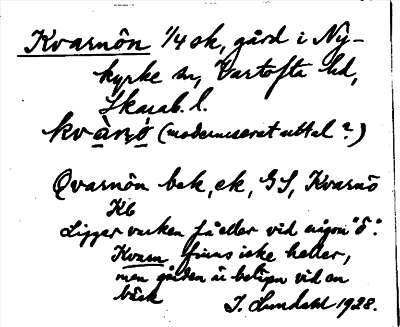 Kvarnön 1/4 sk, gård i Ny-
kyrke sn, Vartofta hd,
Skarab. l.
kvà̱ṇó̱ (moderniserat uttal?)
Qvarnön bek, ek, GS, Kvarnö
Kb
Ligger varken på eller vid någon "ö".
Kvarn finns icke heller,
men gården är belägen vid en
bäck
I. Lundahl 1928.